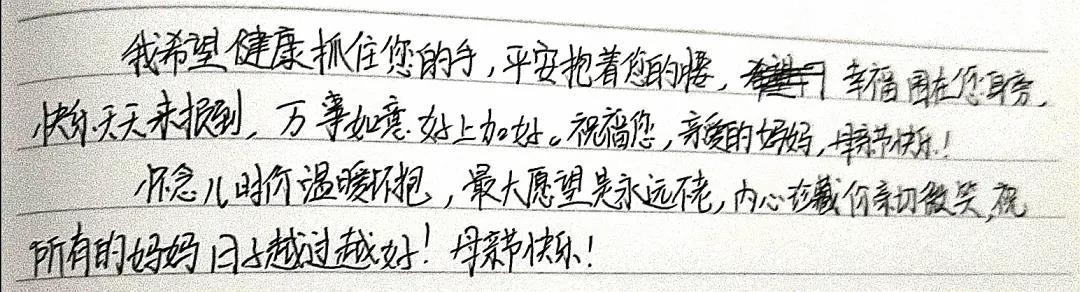 我希望健康抓住您的手，平安抱着您的腰，幸福围在您身旁，
快乐天天来报到，万事如意好上加好。祝福您，亲爱的妈妈，母亲节快乐！
怀念儿时你温暖怀抱，最大愿望是永远不老，内心珍藏你亲切微笑，祝
所有的妈妈日子越过越好！母亲节快乐！